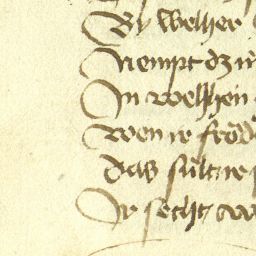 By welher
Nempt dz ir
In welhen
Wen ir fröd
Das sült ir
Ir secht w